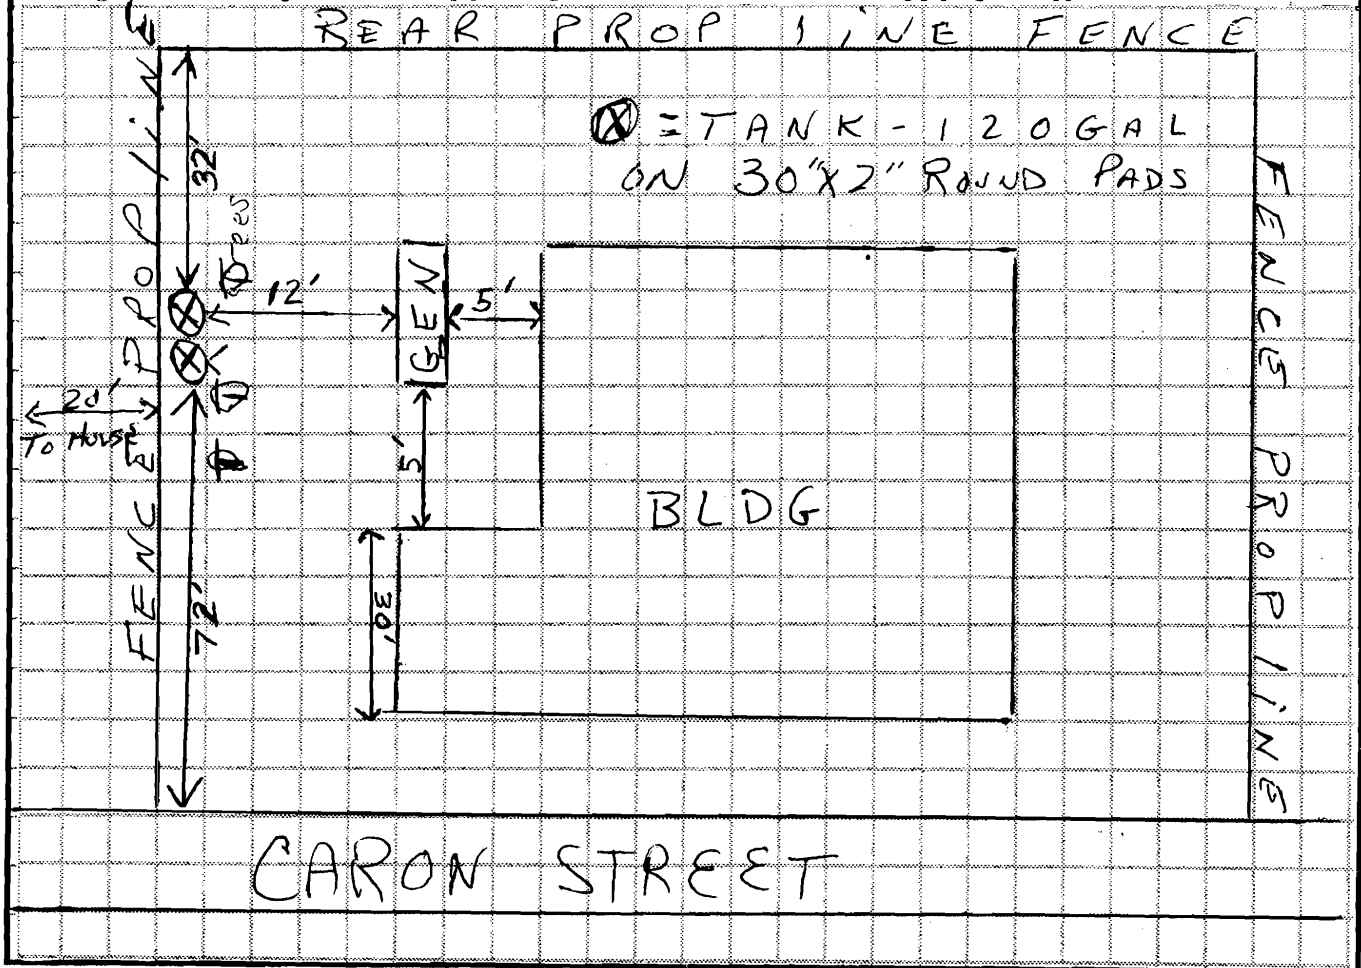 REAR PROP LINE FENCE
⊗ = TANK - 120 GAL
ON 30"X2" ROUND PADS
FENCE PROP LINE
32'
Trees
12'
GEN
5'
To House
5'
BLDG
30'
72'
FENCE PROP LINE
CARON STREET